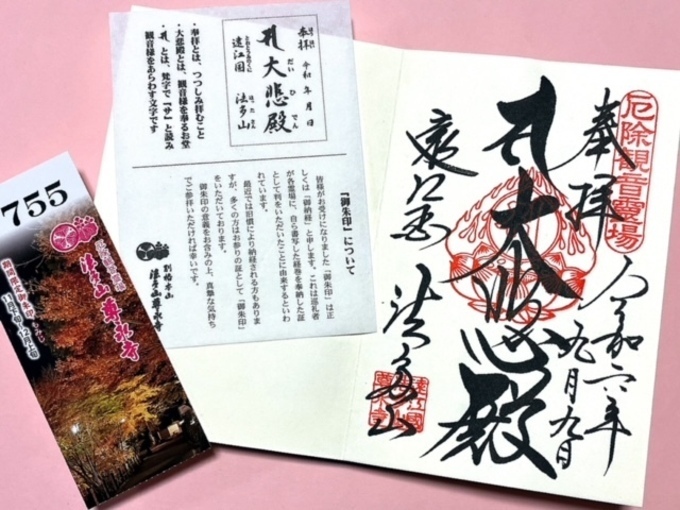 厄除観音霊場
奉拝
令和六年
九月九日
大悲殿
遠江国
法多山
遠江国
尊永寺
奉拝 令和 年 月 日
大悲殿
だいひでん
遠江国
とおとうみのくに
法多山
・奉拝とは、つつしみ拝むこと
・大悲殿とは、観音様を奉るお堂
・ とは、梵字で『サ』と読み
観音様をあらわす文字です
『御朱印』について
皆様がお受けになりました『御朱印』は正
しくは『御納経』と申します。これは巡礼者
が各霊場に、自ら書写した経巻を奉納した証
として判をいただいたことに由来するといわ
れています。
最近では旧慣により納経される方もありま
すが、多くの方はお参りの証として『御朱印』
をいただいております。
御朱印の意義をお含みの上、真摯な気持ち
でご参拝いただければ幸いです。
別格本山
法多山尊永寺
755
法多山尊永寺